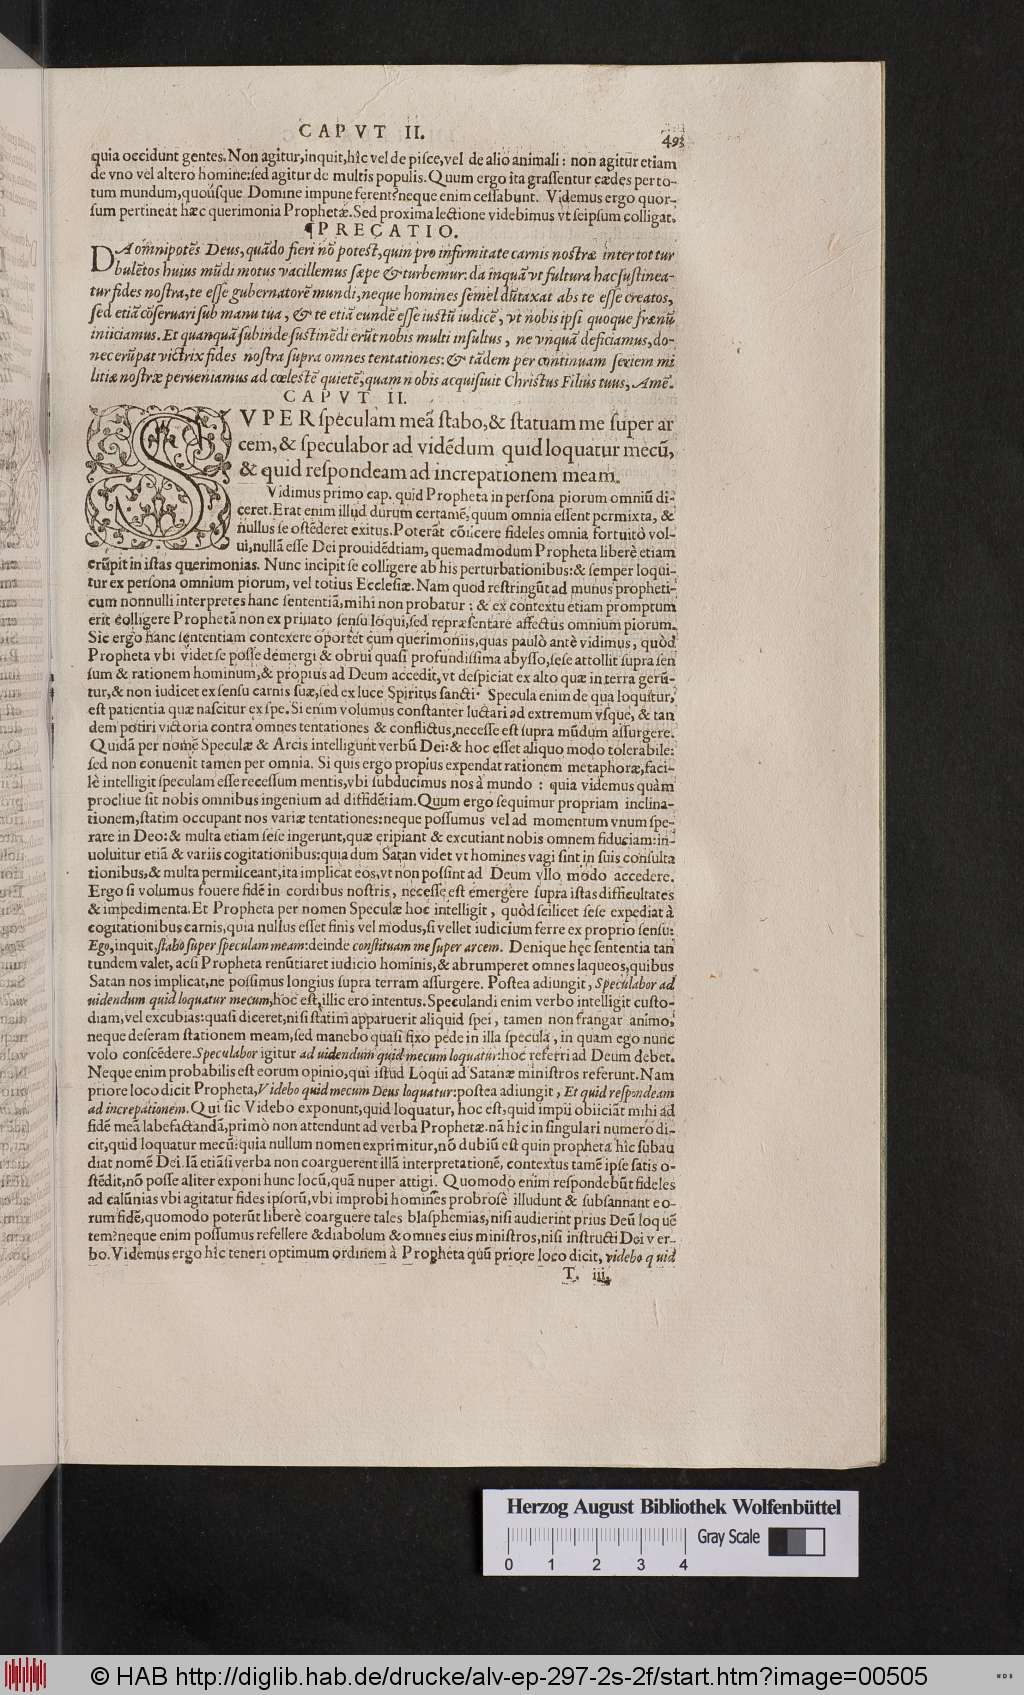 CAPVT II.
493
quia occidunt gentes. Non agitur, inquit, hîc vel de pisce, vel de alio animali : non agitur etiam
de vno vel altero homine: sed agitur de multis populis. Quum ergo ita grassentur cædes per to-
tum mundum, quousque Domine impune ferent? neque enim cessabunt. Videmus ergo quor-
sum pertineat hæc querimonia Prophetæ. Sed proxima lectione videbimus vt seipsum colligat.
¶PRECATIO.
DA omnipotẽs Deus, quãdo fieri nõ potest, quin pro infirmitate carnis nostræ inter tot tur
bulẽtos huius mũdi motus vacillemus sæpe & turbemur: da inquã vt fultura hac sustinea-
tur fides nostra, te esse gubernatorẽ mundi, neque homines semel dũtaxat abs te esse creatos,
sed etiã cõseruari sub manu tua, & te etiã eundẽ esse iustũ iudicẽ, vt nobis ipsi quoque frænũ
iniiciamus. Et quanquã subinde sustinẽdi erũt nobis multi insultus, ne vnquã deficiamus, do-
nec erũpat victrix fides nostra supra omnes tentationes: & tãdem per continuam seriem mi
litiæ nostræ perueniamus ad cœlestẽ quietẽ, quam nobis acquisiuit Christus Filius tuus, Amẽ.
CAPVT II.
SVPER speculam meã stabo, & statuam me super ar
cem, & speculabor ad vidẽdum quid loquatur mecũ,
& quid respondeam ad increpationem meam.
Vidimus primo cap. quid Propheta in persona piorum omniũ di-
ceret. Erat enim illud durum certamẽ, quum omnia essent permixta, &
nullus se ostẽderet exitus. Poterãt cõiicere fideles omnia fortuitò vol-
ui, nullã esse Dei prouidẽtiam, quemadmodum Propheta liberè etiam
erũpit in istas querimonias. Nunc incipit se colligere ab his perturbationibus: & semper loqui-
tur ex persona omnium piorum, vel totius Ecclesiæ. Nam quod restringũt ad munus propheti-
cum nonnulli interpretes hanc sententiã, mihi non probatur : & ex contextu etiam promptum
erit colligere Prophetã non ex priuato sensu loqui, sed repræsentare affectus omnium piorum.
Sic ergo hanc sententiam contexere oportet cum querimoniis, quas paulò antè vidimus, quòd
Propheta vbi videt se posse demergi & obrui quasi profundissima abysso, sese attollit supra sen
sum & rationem hominum, & propius ad Deum accedit, vt despiciat ex alto quæ in terra gerũ-
tur, & non iudicet ex sensu carnis suæ, sed ex luce Spiritus sancti. Specula enim de qua loquitur,
est patientia quæ nascitur ex spe. Si enim volumus constanter luctari ad extremum vsque, & tan
dem potiri victoria contra omnes tentationes & conflictus, necesse est supra mũdum assurgere.
Quidã per nomẽ Speculæ & Arcis intelligunt verbũ Dei: & hoc esset aliquo modo tolerabile:
sed non conuenit tamen per omnia. Si quis ergo propius expendat rationem metaphoræ, faci-
lè intelligit speculam esse recessum mentis, vbi subducimus nos à mundo : quia videmus quàm
procliue sit nobis omnibus ingenium ad diffidẽtiam. Quum ergo sequimur propriam inclina-
tionem, statim occupant nos variæ tentationes: neque possumus vel ad momentum vnum spe-
rare in Deo: & multa etiam sese ingerunt, quæ eripiant & excutiant nobis omnem fiduciam: in-
uoluitur etiã & variis cogitationibus: quia dum Satan videt vt homines vagi sint in suis consulta
tionibus, & multa permisceant, ita implicat eos, vt non possint ad Deum vllo modo accedere.
Ergo si volumus fouere fidẽ in cordibus nostris, necesse est emergere supra istas difficultates
& impedimenta. Et Propheta per nomen Speculæ hoc intelligit, quòd scilicet sese expediat à
cogitationibus carnis, quia nullus esset finis vel modus, si vellet iudicium ferre ex proprio sensu:
Ego, inquit, stabo super speculam meam: deinde constituam me super arcem. Denique hęc sententia tan
tundem valet, acsi Propheta renũtiaret iudicio hominis, & abrumperet omnes laqueos, quibus
Satan nos implicat, ne possimus longius supra terram assurgere. Postea adiungit, Speculabor ad
uidendum quid loquatur mecum, hoc est, illic ero intentus. Speculandi enim verbo intelligit custo-
diam, vel excubias: quasi diceret, nisi statim apparuerit aliquid spei, tamen non frangar animo,
neque deseram stationem meam, sed manebo quasi fixo pede in illa specula, in quam ego nunc
volo conscẽdere. Speculabor igitur ad uidendum quid mecum loquatur: hoc referri ad Deum debet.
Neque enim probabilis est eorum opinio, qui istud Loqui ad Satanæ ministros referunt. Nam
priore loco dicit Propheta, Videbo quid mecum Deus loquatur: postea adiungit, Et quid respondeam
ad increpationem. Qui sic Videbo exponunt, quid loquatur, hoc est, quid impii obiiciãt mihi ad
fidẽ meã labefactandã, primò non attendunt ad verba Prophetæ. nã hîc in singulari numero di-
cit, quid loquatur mecũ: quia nullum nomen exprimitur, nõ dubiũ est quin propheta hîc subau
diat nomẽ Dei. Iã etiãsi verba non coarguerent illã interpretationẽ, contextus tamẽ ipse satis o-
stẽdit, nõ posse aliter exponi hunc locũ, quã nuper attigi. Quomodo enim respondebũt fideles
ad calũnias vbi agitatur fides ipsorũ, vbi improbi homines probrosè illudunt & subsannant eo-
rum fidẽ, quomodo poterũt liberè coarguere tales blasphemias, nisi audierint prius Deũ loquẽ
tem? neque enim possumus refellere & diabolum & omnes eius ministros, nisi instructi Dei ver-
bo. Videmus ergo hîc teneri optimum ordinem à Propheta quũ priore loco dicit, videbo quid
T. iii.
Herzog August Bibliothek Wolfenbüttel
Gray Scale
0 1 2 3 4
© HAB http://diglib.hab.de/drucke/alv-ep-297-2s-2f/start.htm?image=00505